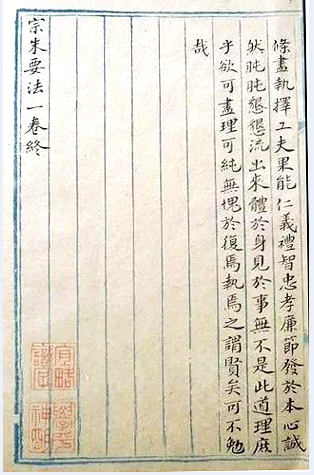 條盡執擇工夫果能仁義禮智忠孝廉節發於本心誠
然肫肫懇懇流出來體於身見於事無不是此道理庶
乎欲可盡理可純無愧於復焉執焉之謂賢矣可不勉
哉
宗朱要法一卷終